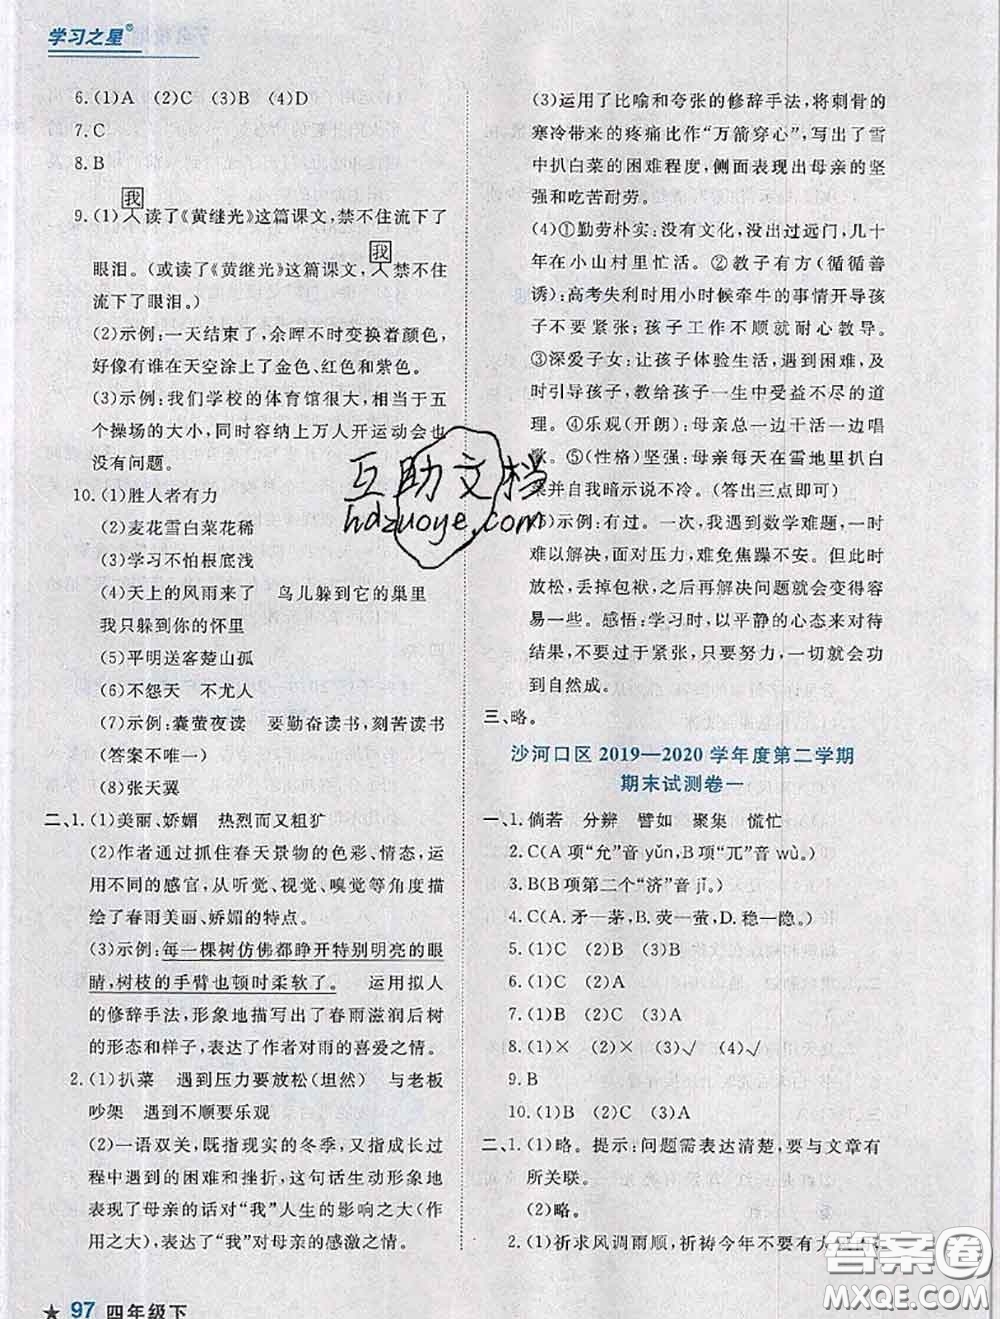 学习之星®
6.(1)A　(2)C　(3)B　(4)D
7.C
8.B
我
9.(1)人读了《黄继光》这篇课文,禁不住流下了
我
眼泪。(或读了《黄继光》这篇课文,人禁不住
流下了眼泪。)
(2)示例:一天结束了,余晖不时变换着颜色,
好像有谁在天空涂上了金色、红色和紫色。
(3)示例:我们学校的体育馆很大,相当于五
个操场的大小,同时容纳上万人开运动会也
没有问题。
10.(1)胜人者有力
(2)麦花雪白菜花稀
(3)学习不怕根底浅
(4)天上的风雨来了　鸟儿躲到它的巢里
我只躲到你的怀里
(5)平明送客楚山孤
(6)不怨天　不尤人
(7)示例:囊萤夜读　要勤奋读书,刻苦读书
(答案不唯一)
(8)张天翼
二、1.(1)美丽、娇媚　热烈而又粗犷
(2)作者通过抓住春天景物的色彩、情态,运
用不同的感官,从听觉、视觉、嗅觉等角度描
绘了春雨美丽、娇媚的特点。
(3)示例:每一棵树仿佛都睁开特别明亮的眼
睛,树枝的手臂也顿时柔软了。　运用拟人
的修辞手法,形象地描写出了春雨滋润后树
的形态和样子,表达了作者对雨的喜爱之情。
2.(1)扒菜　遇到压力要放松(坦然)　与老板
吵架　遇到不顺要乐观
(2)一语双关,既指现实的冬季,又指成长过
程中的困难和挫折,这句话生动形象地
表现了母亲的话对“我”人生的影响之大(或
作用之大),表达了“我”对母亲的感激之情。
(3)运用了比喻和夸张的修辞手法,将刺骨的
寒冷带来的疼痛比作“万箭穿心”,写出了雪
中扒白菜的困难程度,侧面表现出母亲的坚
强和吃苦耐劳。
(4)①勤劳朴实:没有文化,没出过远门,几十
年在小山村里忙活。②教子有方(循循善
诱):高考失利时用小时候牵牛的事情开导孩
子不要紧张;孩子工作不顺就耐心教导。
③深爱子女:让孩子体验生活,遇到困难,及
时引导孩子,教给孩子一生中受益无尽的道
理。④乐观(开朗):母亲总一边干活一边唱
歌。⑤(性格)坚强:母亲每天在雪地里扒白
菜并自我暗示说不冷。(答出三点即可)
(5)示例:有过。一次,我遇到数学难题,一时
难以解决,面对压力,难免焦躁不安。但此时
放松,丢掉包袱,然后再解决问题就变得容
易一些。感悟:学习时,以平静的心态来对待
结果,不要过于紧张,只要努力,一切就会功
到自然成。
三、略。
沙河口区 2019—2020 学年度第二学期
期末试测卷一
一、1.倘若　分辨　譬如　聚集　慌忙
2.C(A项“允”音 yǔn,B项“兀”音 wù。)
3.B(B项第二个“济”音 jǐ。)
4.C(A.矛—茅,B.荧—萤,D.稳—隐。)
5.(1)C　(2)B　(3)B
6.(1)C　(2)A
7.(1)B　(2)C　(3)A
8.(1)×　(2)×　(3)√　(4)√
9.B
10.(1)B　(2)C　(3)A
二、1.(1)略。提示:问题需表达清楚,要与文章有
所关联。
(2)略。
2.(1)祈求风调雨顺,祈祷今年不要有大
互助文档
hdzuoye.com
答案圈
MXQE.COM
★ 97 四年级下